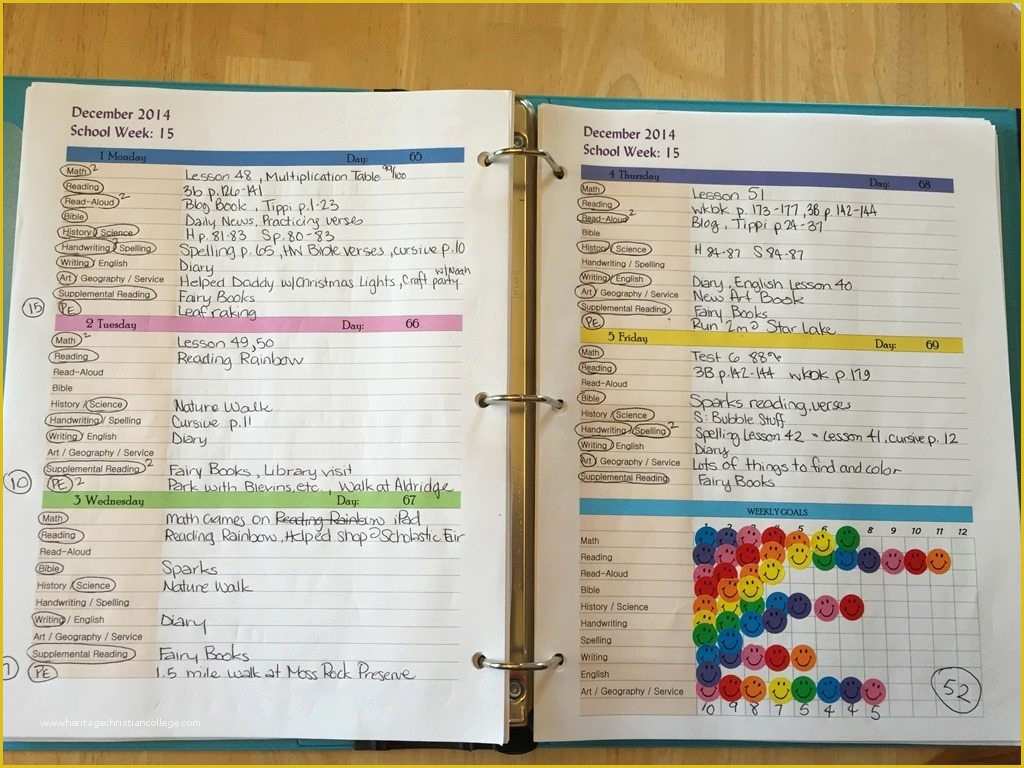 December 2014
School Week: 15
1 Monday Day: 65
Math 2 Lesson 48, Multiplication Table 99/100
Reading 3b p.126-141
Read-Aloud 2 Blog Book, Tippi p.1-23
Bible Daily News, Practicing verses
History / Science H p. 81-83 S p. 80-83
Handwriting 2 / Spelling Spelling p. 65, HW Bible verses, cursive p. 10
Writing / English Diary
Art / Geography / Service Helped Daddy w/Christmas Lights, Craft party w/Noah
Supplemental Reading Fairy Books
15 PE Leaf raking
2 Tuesday Day: 66
Math 2 Lesson 49, 50
Reading Reading Rainbow
Read-Aloud
Bible
History / Science Nature Walk
Handwriting / Spelling Cursive p. 11
Writing / English Diary
Art / Geography / Service
Supplemental Reading 2 Fairy Books, Library visit
10 PE 2 Park with Blevins, etc., Walk at Aldridge
3 Wednesday Day: 67
Math Math Games on Reading Rainbow iPad
Reading Reading Rainbow, Helped shop @ Scholastic Fair
Read-Aloud
Bible Sparks
History / Science Nature Walk
Handwriting / Spelling
Writing / English Diary
Art / Geography / Service
Supplemental Reading Fairy Books
PE 1.5 mile walk at Moss Rock Preserve
www.heritagechristiancollege.com
December 2014
School Week: 15
4 Thursday Day: 68
Math Lesson 51
Reading wkbk p. 173-177, 3B p. 142-144
Read-Aloud 2 Blog, Tippi p 24-37
Bible
History / Science H 84-87 S 84-87
Handwriting / Spelling
Writing / English Diary, English Lesson 40
Art / Geography / Service New Art Book
Supplemental Reading Fairy Books
PE Run 2m @ Star Lake
5 Friday Day: 69
Math Test 6 88%
Reading 3B p. 142-144 wkbk p. 179
Read-Aloud
Bible Sparks reading, verses
History / Science S: Bubble Stuff
Handwriting / Spelling 2 Spelling Lesson 42 - Lesson 41, cursive p. 12
Writing / English Diary
Art / Geography / Service Lots of things to find and color
Supplemental Reading Fairy Books
WEEKLY GOALS
1 2 3 4 5 6 7 8 9 10 11 12
Math
Reading
Read-Aloud
Bible
History / Science
Handwriting
Spelling
Writing
English
Art / Geography / Service
10 9 8 7 5 4 4 5
52